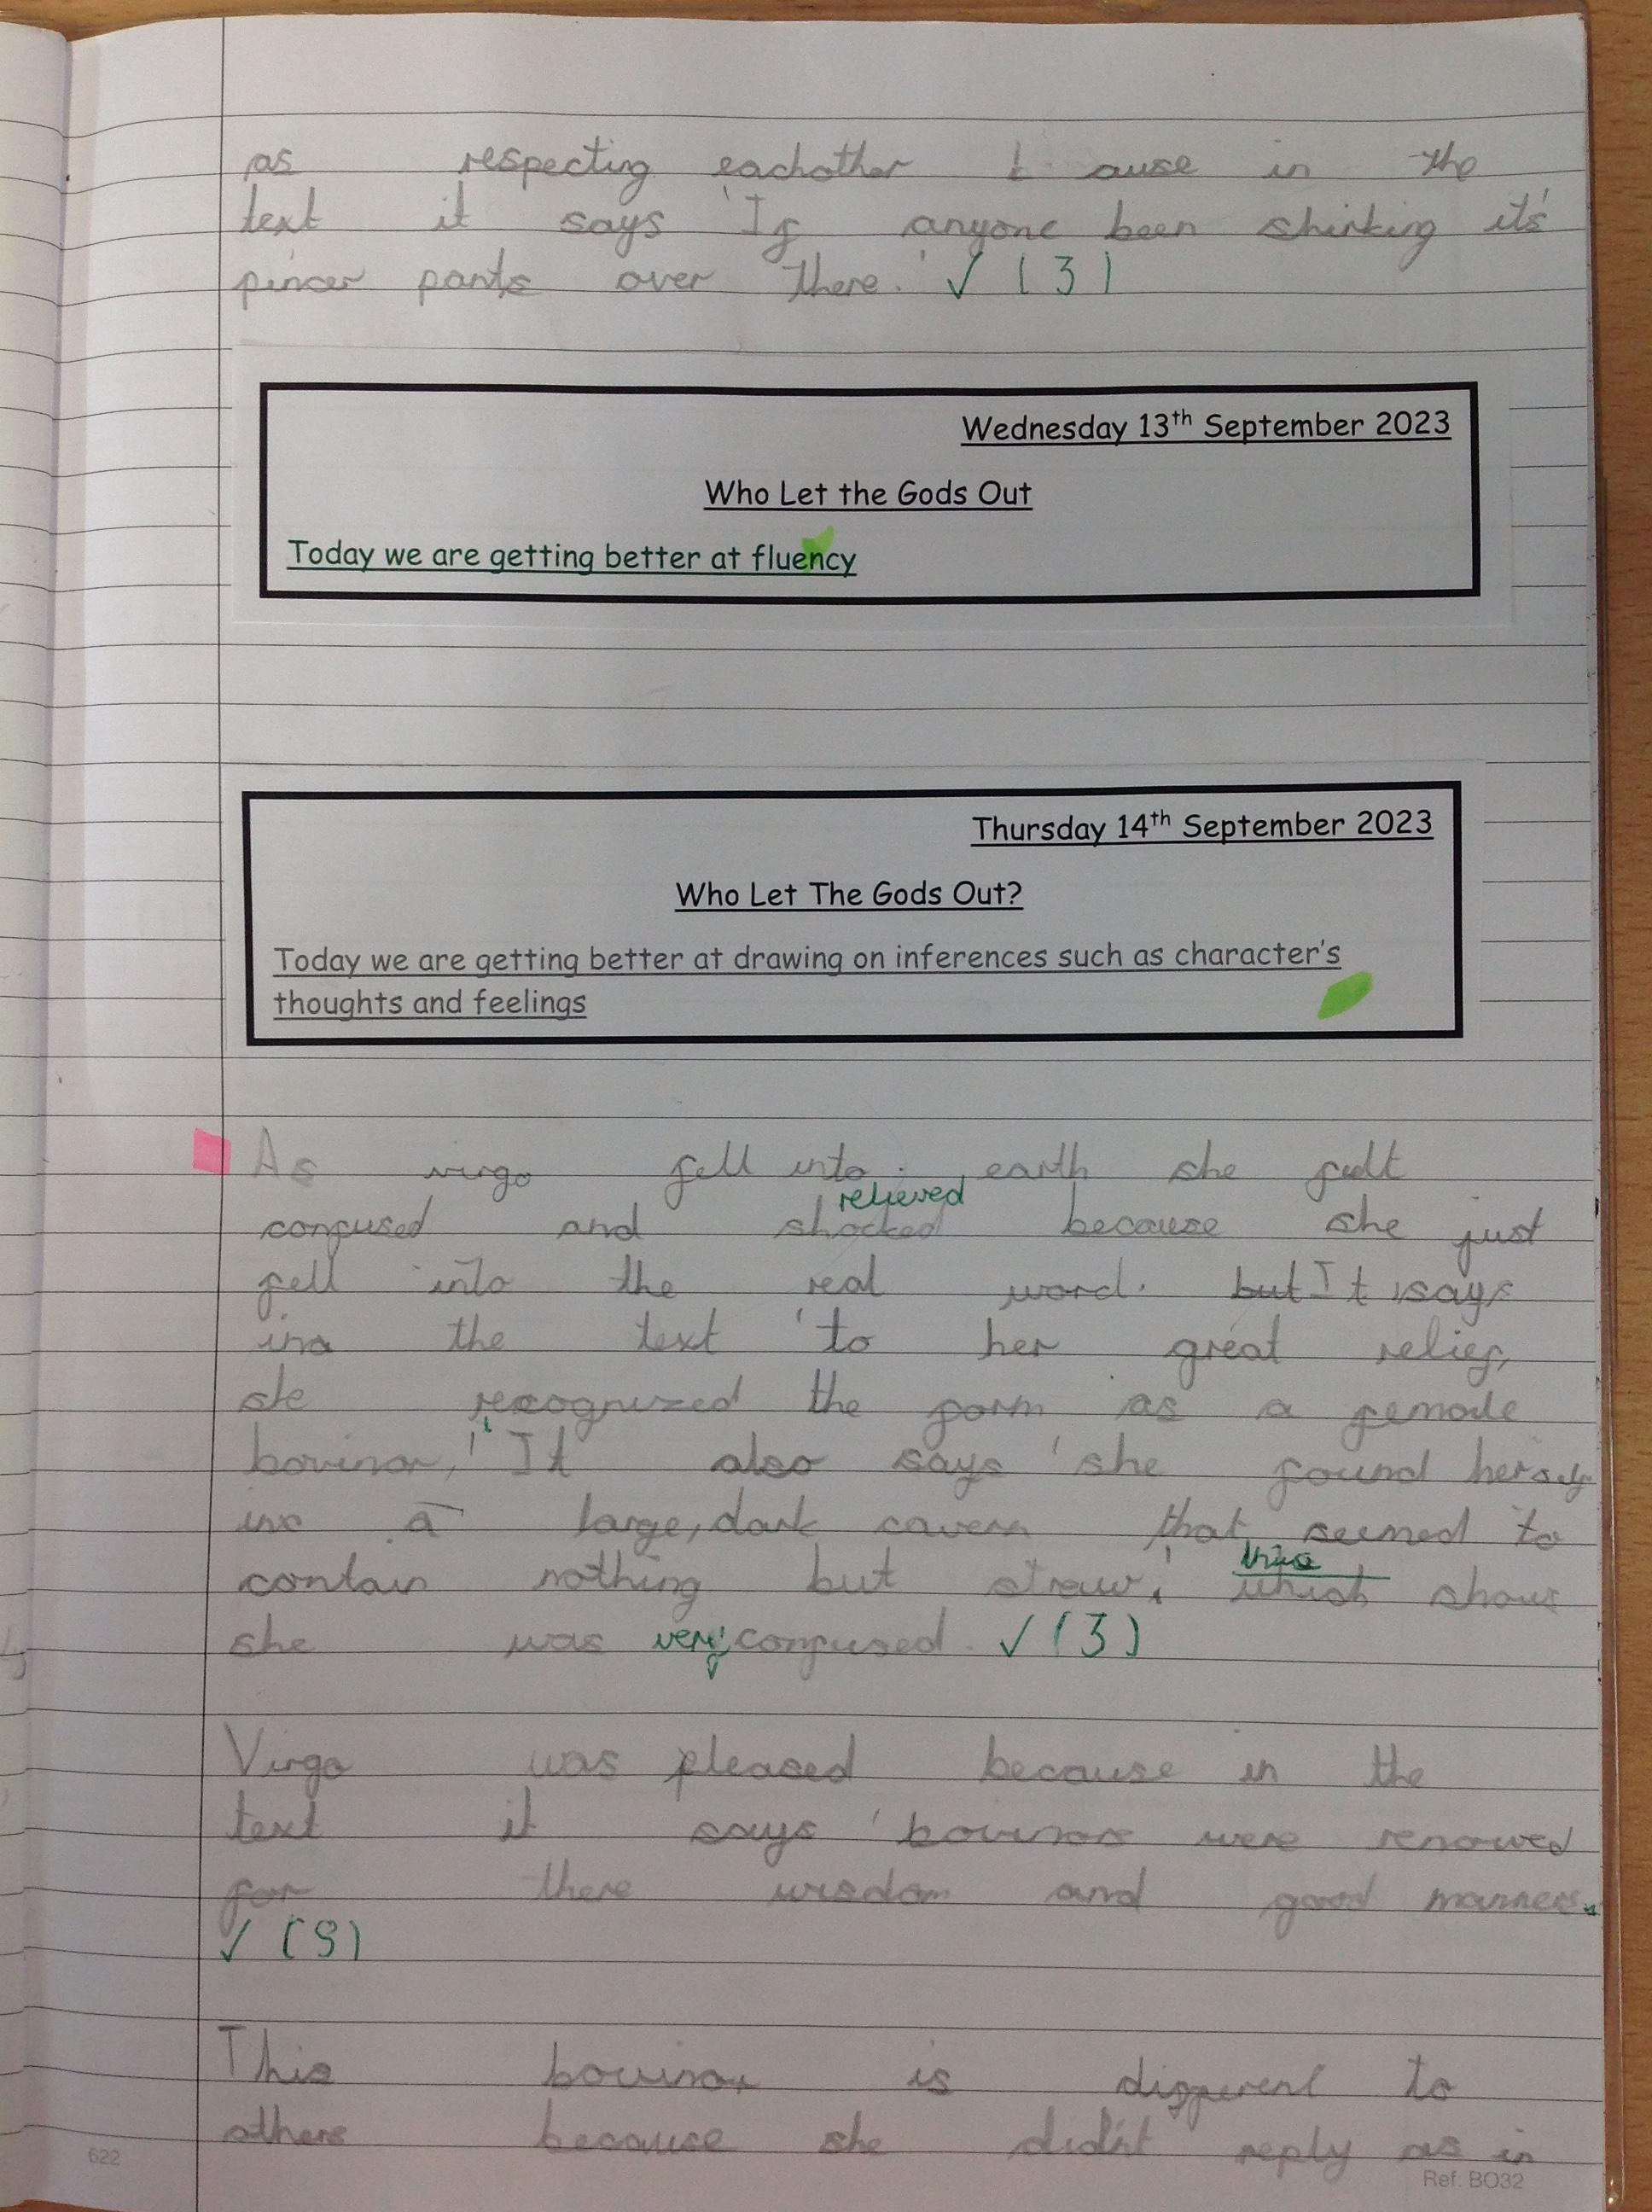 as respecting eachother because in the
text it says 'If anyone been shirking it's
pincer pants over there.' ✓ (3)
Wednesday 13th September 2023
Who Let the Gods Out
Today we are getting better at fluency
Thursday 14th September 2023
Who Let The Gods Out?
Today we are getting better at drawing on inferences such as character's
thoughts and feelings
As virgo fell into earth she felt
relieved
confused and shocked because she just
fell into the real word. but It says
in the text 'to her great relief,
she recognized the form as a female
bovinor,' It also says 'she found herself
in a large, dark cavern that seemed to
this
contain nothing but straw,' which shows
she was very confused. ✓ (3)
Virgo was pleased because in the
text it says 'bovinors were renowed
for there wisdom and good manners.
✓ (S)
This bovinor is different to
others because she didn't reply as in
622
Ref: BO32